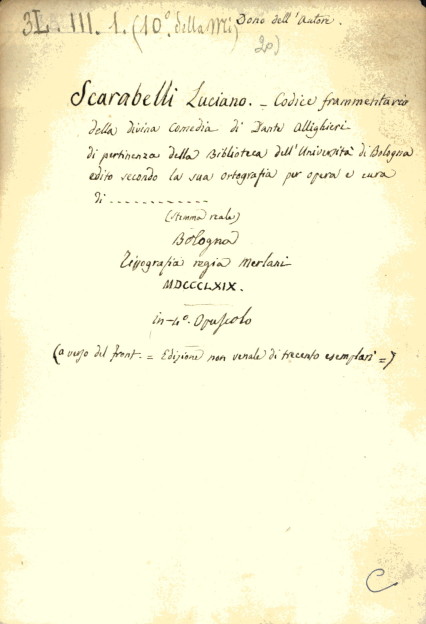 3L. III. 1. (10º della Mi) Dono dell'Autore.
20)
Scarabelli Luciano. - Codice frammentario
della divina Comedia di Dante Allighieri
di pertinenza della Biblioteca dell'Università di Bologna
edito secondo la sua ortografia per opera e cura
di ------------
(stemma reale)
Bologna
Tipografia regia Merlani
MDCCCLXIX.
in-4º. Opuscolo
(a verso del front. = Edizione non venale di trecento esemplari =)
C